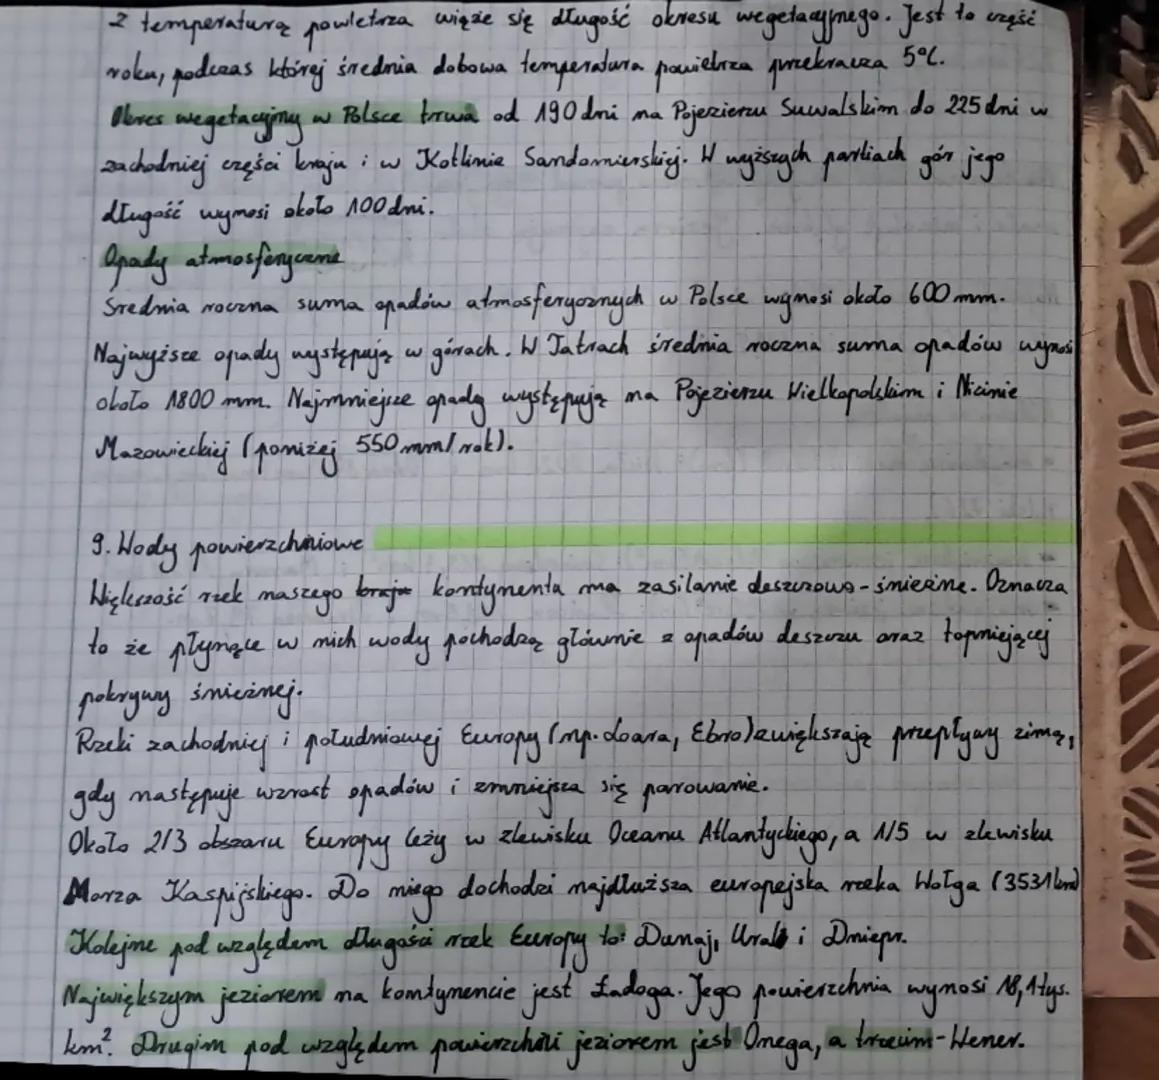 z temperaturą powietrza wiąże się długość okresu wegetacyjnego. Jest to część
roku, podczas której średnia dobowa temperatura powietrza przekracza 5°C.
Okres wegetacyjny w Polsce trwa od 190 dni na Pojezierzu Suwalskim do 225 dni w
zachodniej części kraju i w Kotlinie Sandomierskiej. W wyższych partiach gór jego
długość wynosi około 100 dni.
Opady atmosferyczne
Średnia roczna suma opadów atmosferycznych w Polsce wynosi około 600 mm.
Najwyższe opady występują w górach. W Tatrach średnia roczna suma opadów wynosi
około 1800 mm. Najmniejsze opady występują na Pojezierzu Wielkopolskim i Nizinie
Mazowieckiej (poniżej 550 mm/rok).
9. Wody powierzchniowe
Większość rzek naszego kraju kontynentu ma zasilanie deszczowo-śnieżne. Oznacza
to że płynące w nich wody pochodzą głównie z opadów deszczu oraz topniejącej
pokrywy śnieżnej.
Rzeki zachodniej i południowej Europy (np. Loara, Ebro) zwiększają przepływy zimą,
gdy następuje wzrost opadów i zmniejsza się parowanie.
Około 2/3 obszaru Europy leży w zlewisku Oceanu Atlantyckiego, a 1/5 w zlewisku
Morza Kaspijskiego. Do niego dochodzi najdłuższa europejska rzeka Wołga (3531 km)
Kolejne pod względem długości rzek Europy to: Dunaj, Ural i Dniepr.
Największym jeziorem na kontynencie jest Ładoga. Jego powierzchnia wynosi 18,1 tys.
km². Drugim pod względem powierzchni jeziorem jest Onega, a trzecim - Wener.